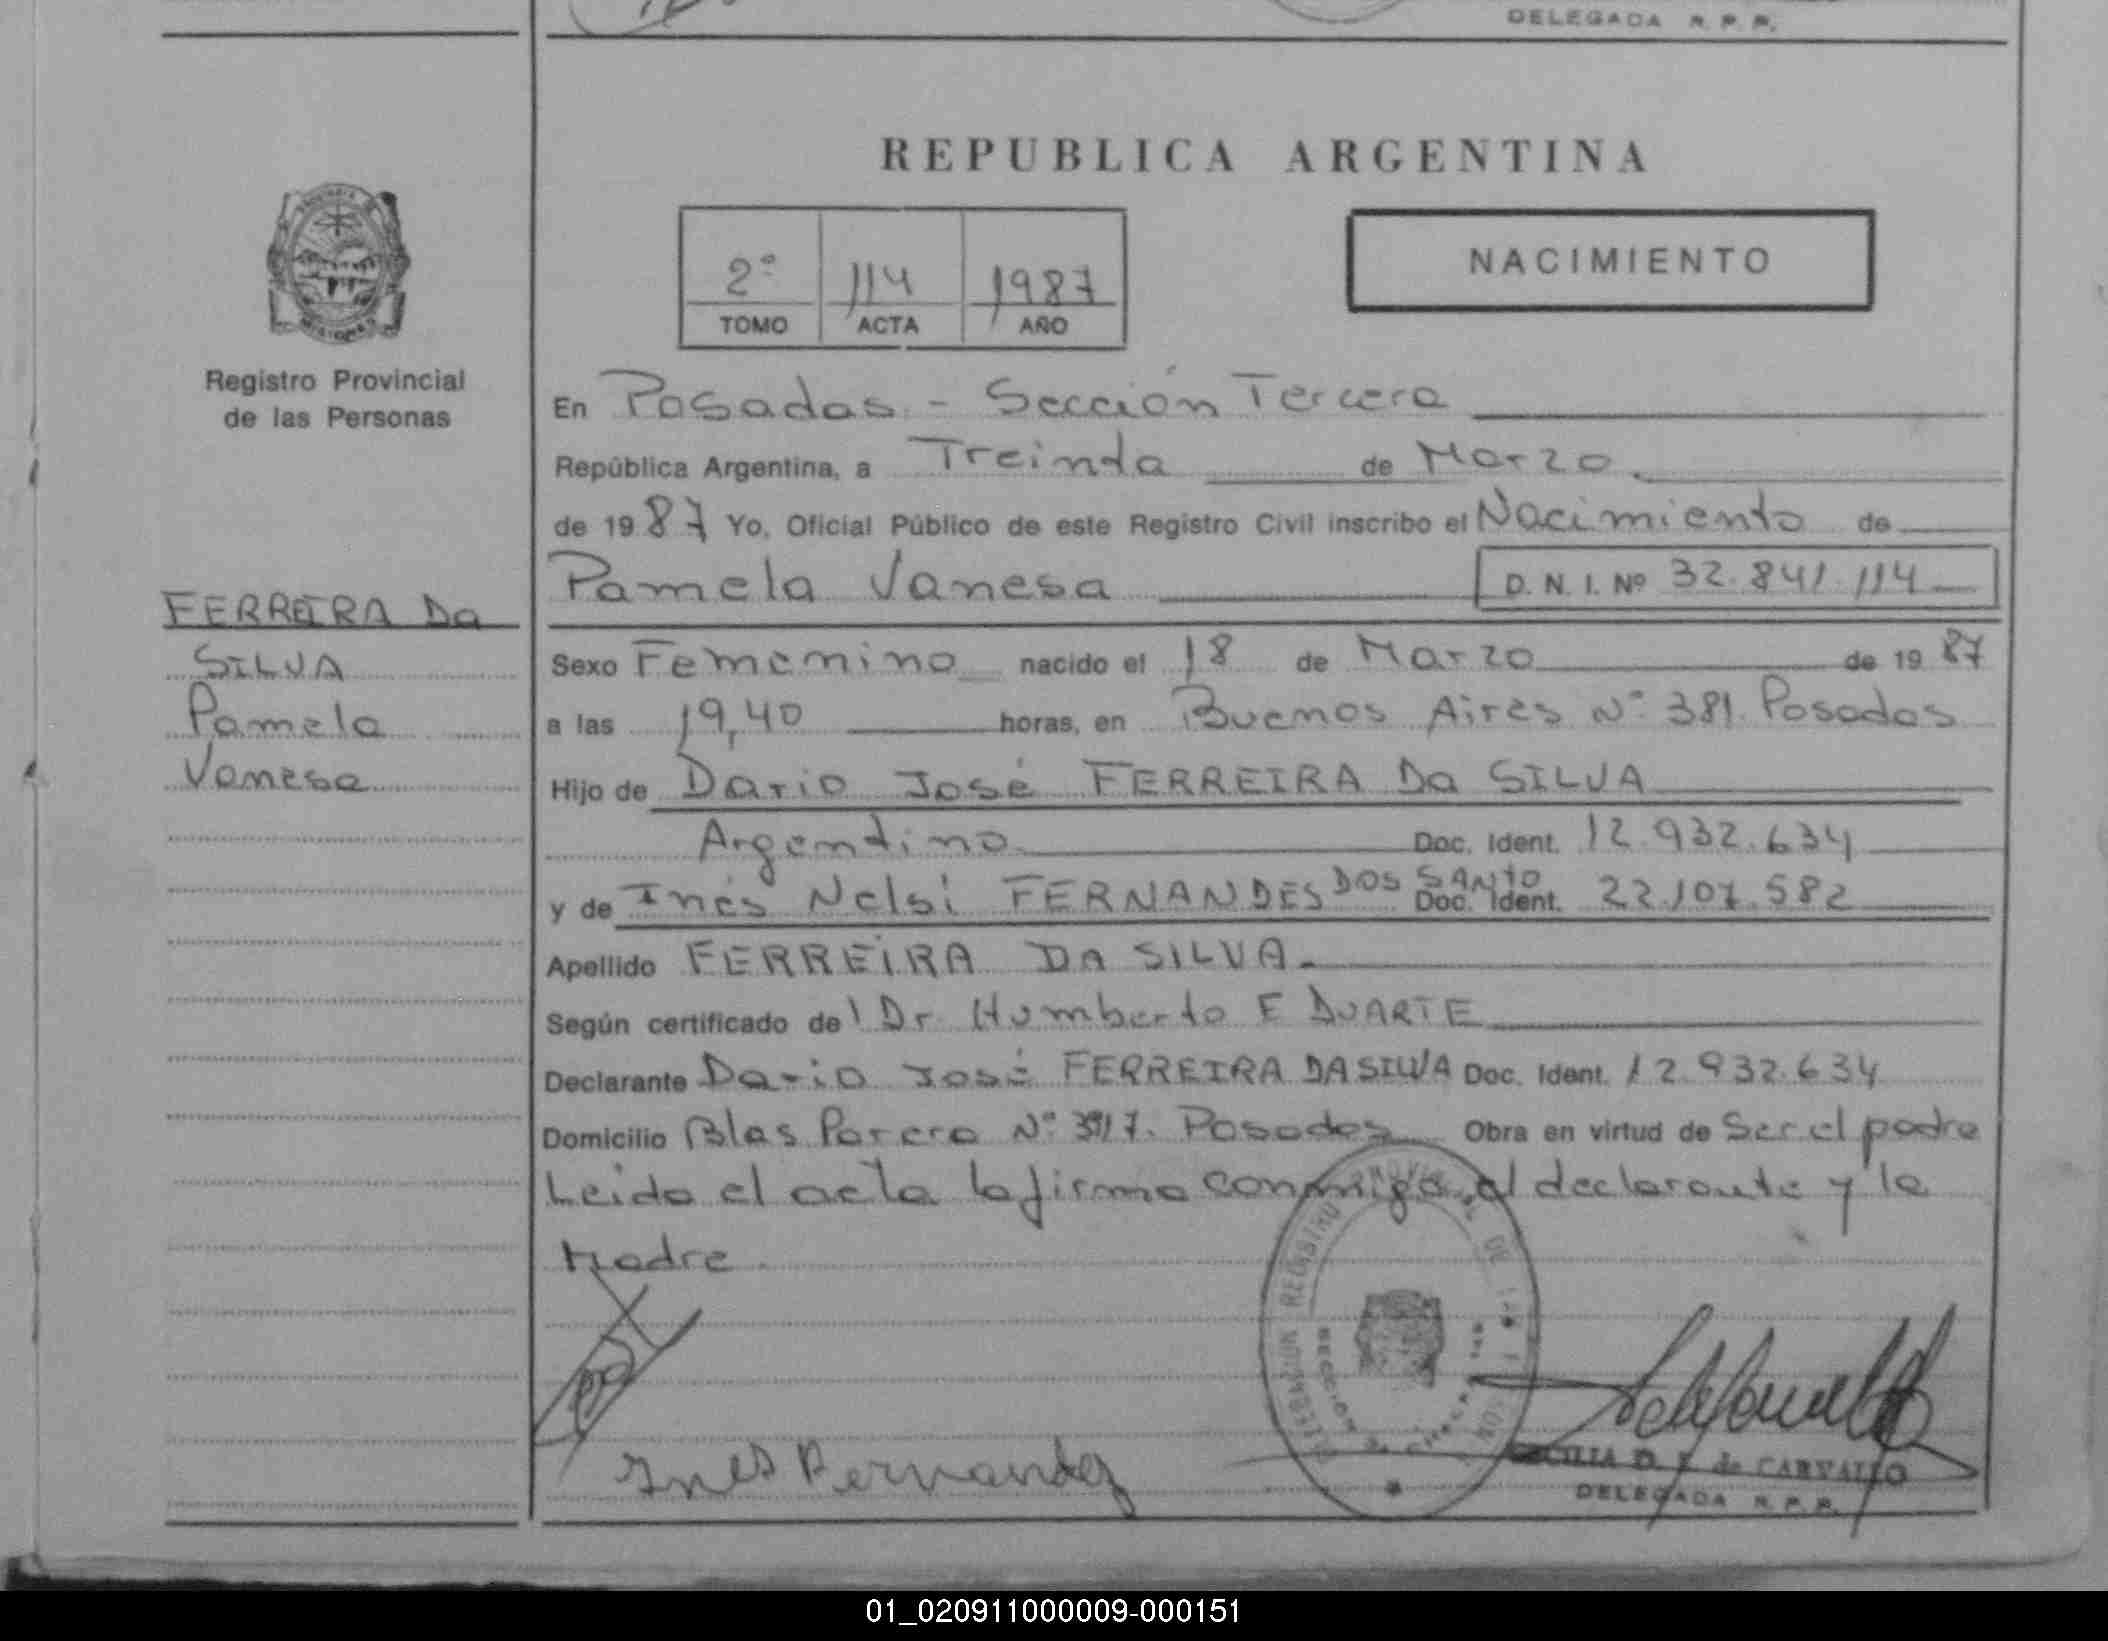 DELEGADA R. P. P.
REPUBLICA ARGENTINA
2º 114 1987
TOMO ACTA AÑO
NACIMIENTO
Registro Provincial
de las Personas
FERREIRA Da
SILVA
Pamela
Vanesa
En Posadas - Sección Tercera
República Argentina, a Treinta de Marzo.
de 1987 Yo, Oficial Público de este Registro Civil inscribo el Nacimiento de
Pamela Vanesa D. N. I. Nº 32.841.114
Sexo Femenino nacido el 18 de Marzo de 1987
a las 19,40 horas, en Buenos Aires Nº 381. Posadas
Hijo de Dario José FERREIRA Da SILVA
Argentino Doc. Ident. 12.932.634
y de Inés Nelsi FERNANDES DOS SANTO Doc. Ident. 22.107.582
Apellido FERREIRA DA SILVA.
Según certificado de l Dr. Humberto E DUARTE
Declarante Dario José FERREIRA DA SILVA Doc. Ident. 12.932.634
Domicilio Blas Parera Nº Posadas Obra en virtud de Ser el padre
Leida el acta la firma conmigo el declarante y la
Madre.
Ines Fernandez
DE CARVALLO
DELEGADA R. P. P.
01_020911000009-000151